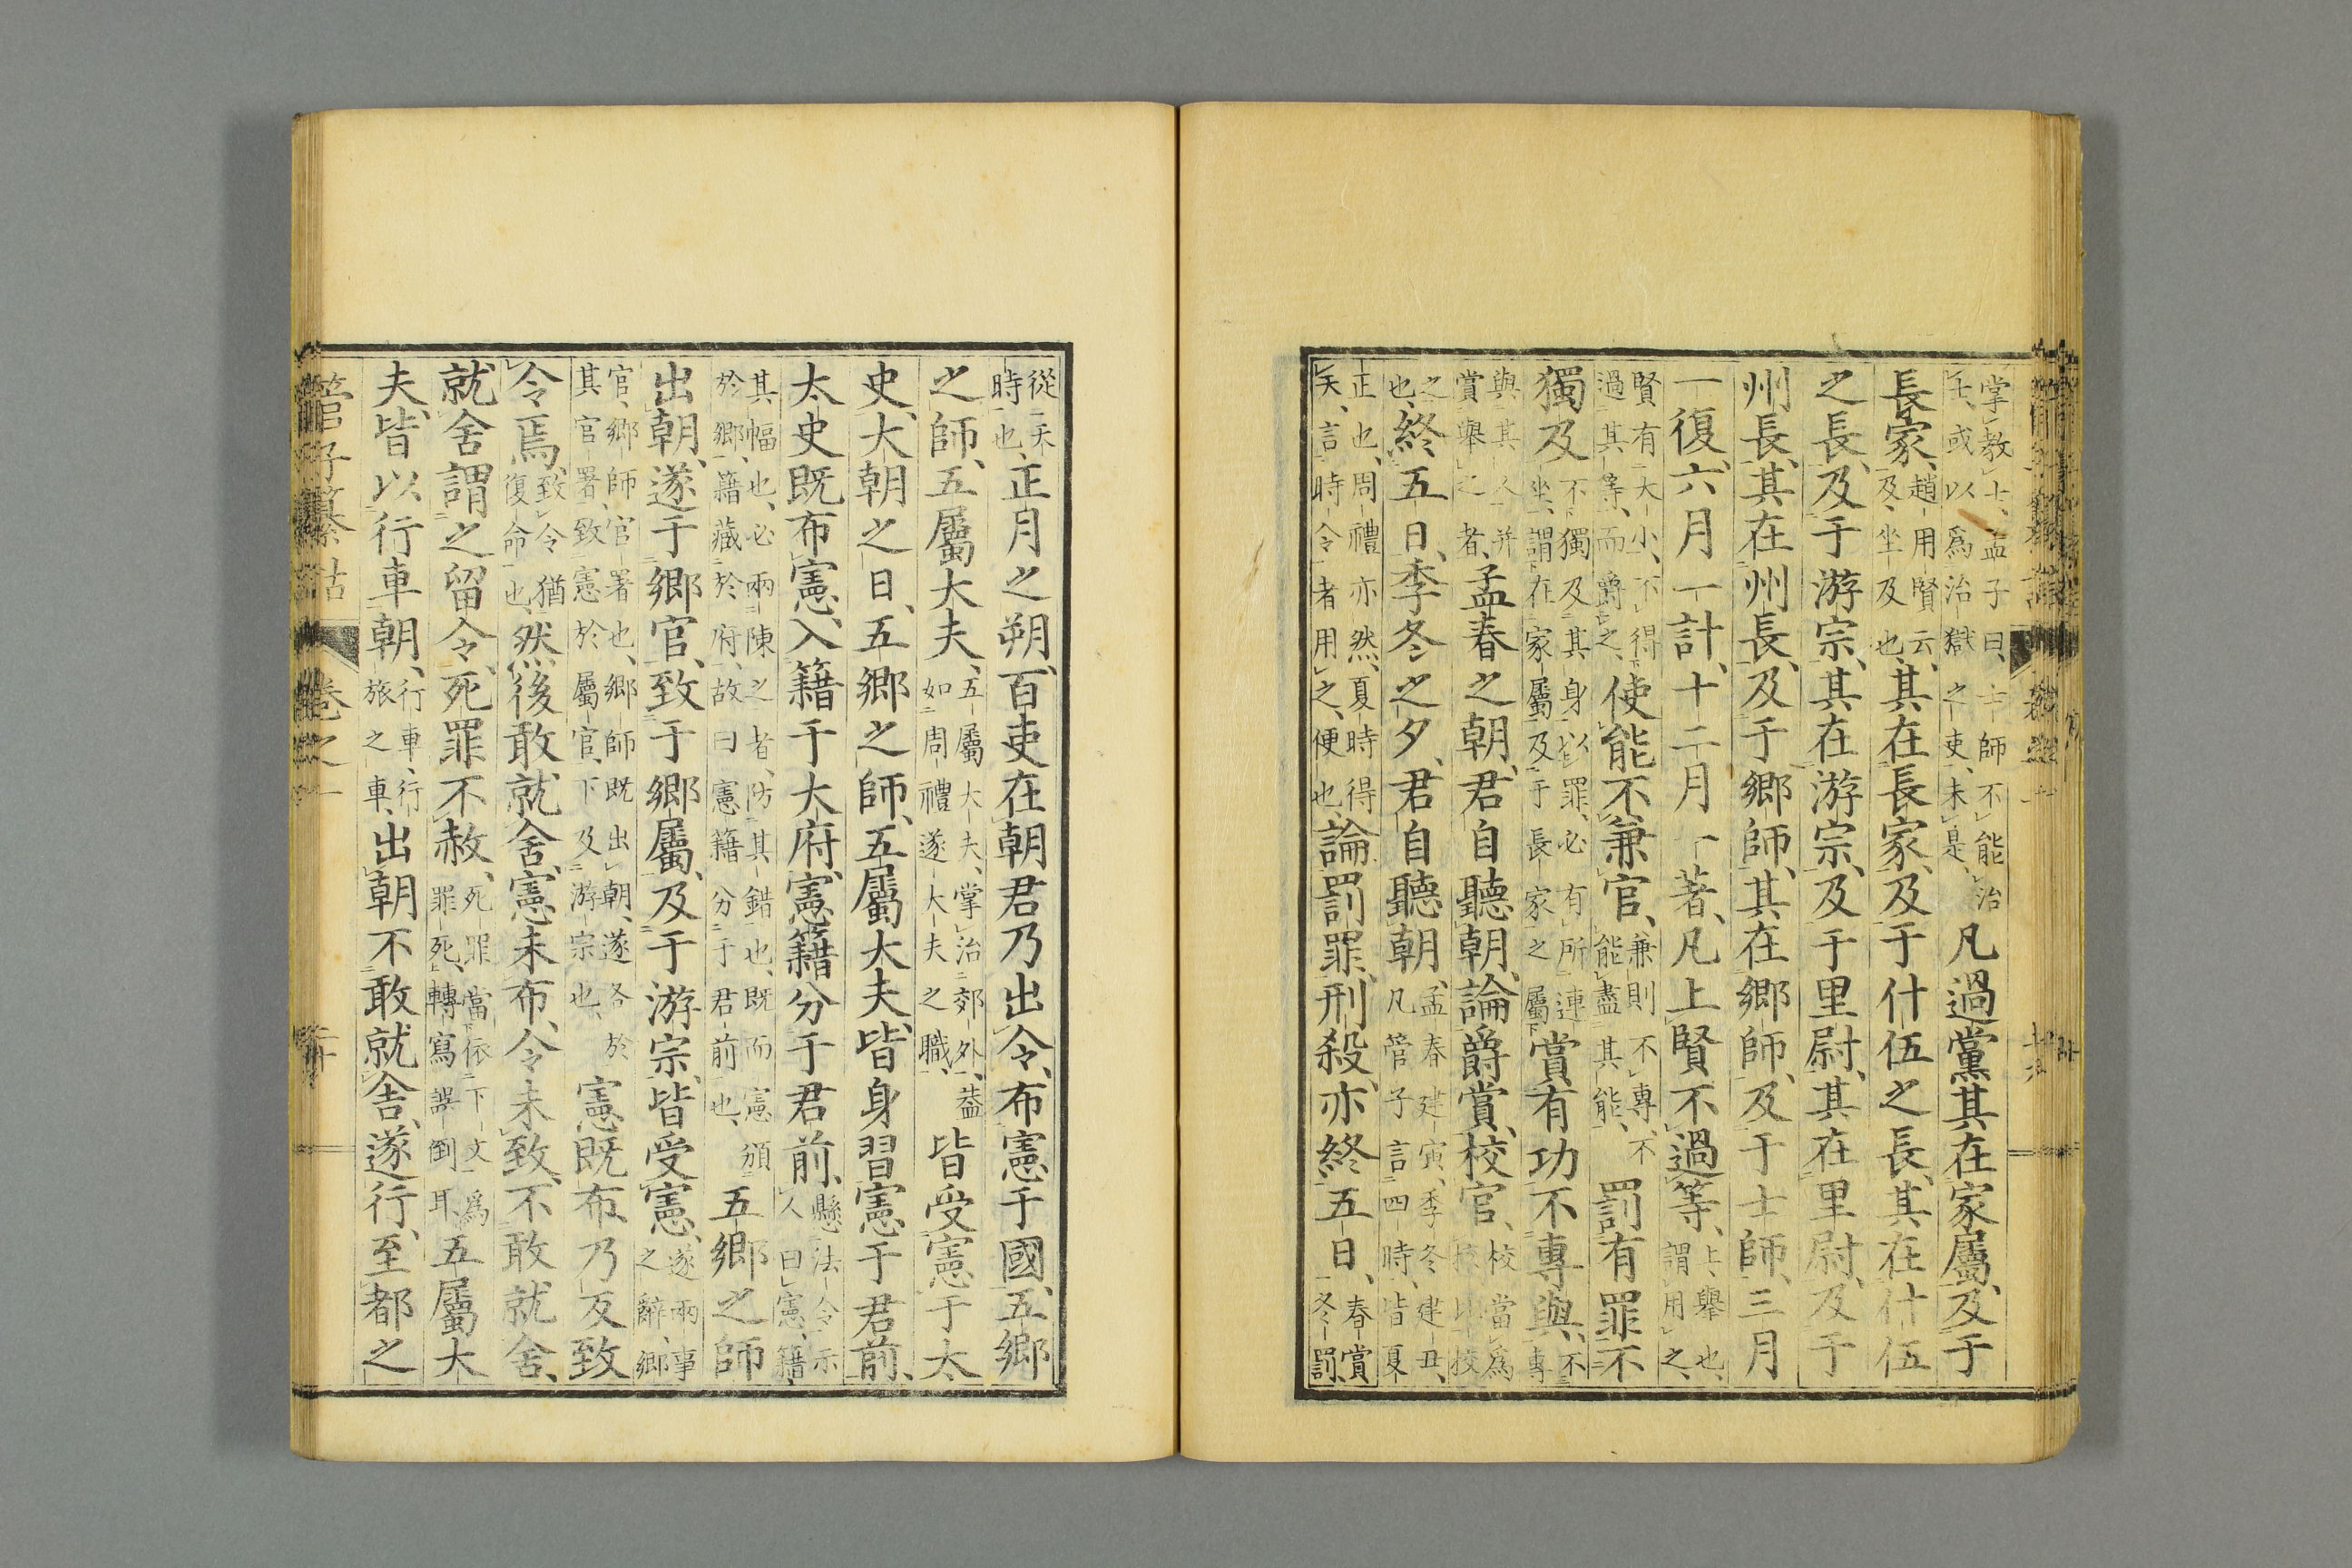 掌教士、孟子曰、士師不能治
士、或以爲治獄之吏、未是、
凡過黨其在家屬、及于
長家、
趙用賢云、
及、坐及也、
其在長家、及于什伍之長、其在什伍
之長、及于游宗、其在游宗、及于里尉、其在里尉、及于
州長、其在州長、及于鄉師、其在鄉師、及于士師、三月
一復、六月一計、十二月一著、凡上賢不過等、
上、舉也、
謂用之、
賢有大小、不得
過其等、而爵之、
使能不兼官、
兼則不專、不
能盡其能、
罰有罪不
獨及
不獨及其身、以罪、必有所連
坐、謂在家屬及于長家之屬
賞有功不專與、
不專
與其人、并
賞舉之者、
孟春之朝、君自聽朝、論爵賞、校官、
校當爲
挍、比校
之
也、
終五日、季冬之夕、君自聽朝、
孟春建寅、季冬建丑、
凡管子言四時、皆夏
正也、周禮亦然、夏時得
天、言時令者用之、便也、
論罰罪、刑殺、亦終五日、
春賞
冬罰、
從天
時也、
正月之朔、百吏在朝、君乃出令、布憲于國、五鄉
之師、五屬大夫、
五屬大夫、掌治郊外、葢
如周禮遂大夫之職、
皆受憲于太
史、大朝之日、五鄉之師、五屬大夫、皆身習憲于君前、
太史既布憲、入籍于大府、憲籍分于君前、
懸法令示
人曰憲、籍、
其幅也、必兩陳之者、防其錯也、既而憲頒
於鄉、籍藏於府、故曰憲籍分于君前也、
五鄉之師
出朝、遂于鄉官、致于鄉屬、及于游宗、皆受憲、
遂兩事
之辭、鄉
官、鄉師官署也、鄉師既出朝、遂各於
其官署、致憲於屬官、下及游宗也、
憲既布、乃反致
令焉、
致令猶
復命也、
然後敢就舍、憲未布、令未致、不敢就舍、
就舍謂之留令、死罪不赦、
死罪當依下文爲
罪死、轉寫誤倒耳、
五屬大
夫、皆以行車朝、
行車、行
旅之車、
出朝不敢就舍、遂行、至都之
管子纂詁
卷之一